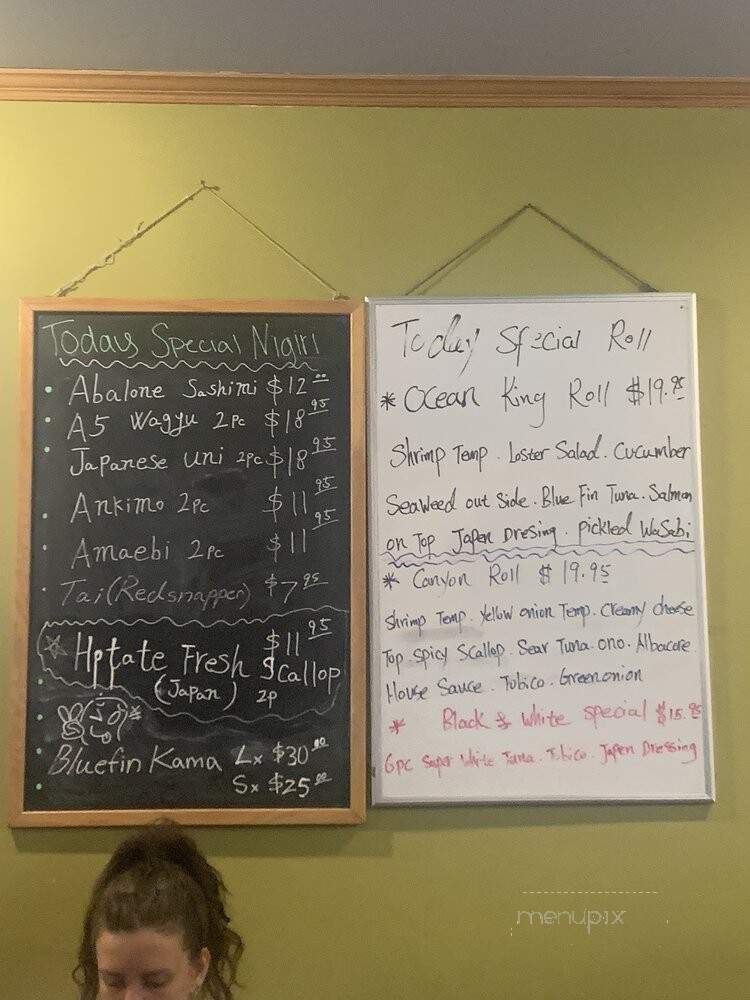 Todays Special Nigiri
Abalone Sashimi $12.00
A5 Wagyu 2pc $18.95
Japanese uni 2pc $18.95
Ankimo 2pc $11.95
Amaebi 2pc $11.95
Tai (Redsnapper) $7.95
Hptate Fresh Scallop $11.95
(Japan) 2p
Bluefin Kama Lx $30.00
Sx $25.00
Today Special Roll
* Ocean King Roll $19.95
Shrimp Temp. Loster Salad. Cucumber
Seaweed out Side. Blue Fin Tuna. Salman
on Top Japen Dresing. pickled WaSabi
* Canyon Roll $19.95
Shrimp Temp. Yellow onion Temp. Creamy cheese
Top. Spicy Scallop. Sear Tuna. ono. Albacore.
House Sauce. Tobico. Green onion
* Black & White Special $15.95
6pc Super White Tuna. Tobico. Japen Dressing
menupix